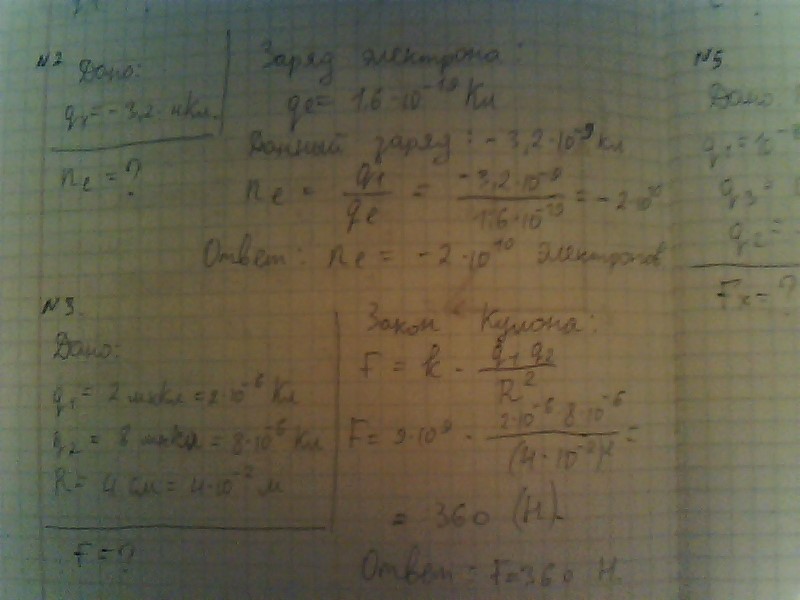 N2
Дано:
q₁ = -3,2 нКл.
nе = ?
Заряд электрона:
qе = 1,6·10⁻¹⁹ Кл
Данный заряд: -3,2·10⁻⁹ кл
nе = q₁/qе = -3,2·10⁻⁹/1,6·10⁻¹⁹ = -2·10¹⁰
Ответ: nе = -2·10¹⁰ электронов
N3.
Дано:
q₁ = 2 мкКл = 2·10⁻⁶ Кл
q₂ = 8 мкКл = 8·10⁻⁶ Кл
R = 4 см = 4·10⁻² м
F = ?
Закон Кулона:
F = k · q₁ q₂/R²
F = 9·10⁹ · 2·10⁻⁶ 8·10⁻⁶/(4·10⁻²)² =
= 360 (Н)
Ответ: F=360 Н.
N5
Дано
q₁ =
q₃ =
q₂ = -
Fк = ?